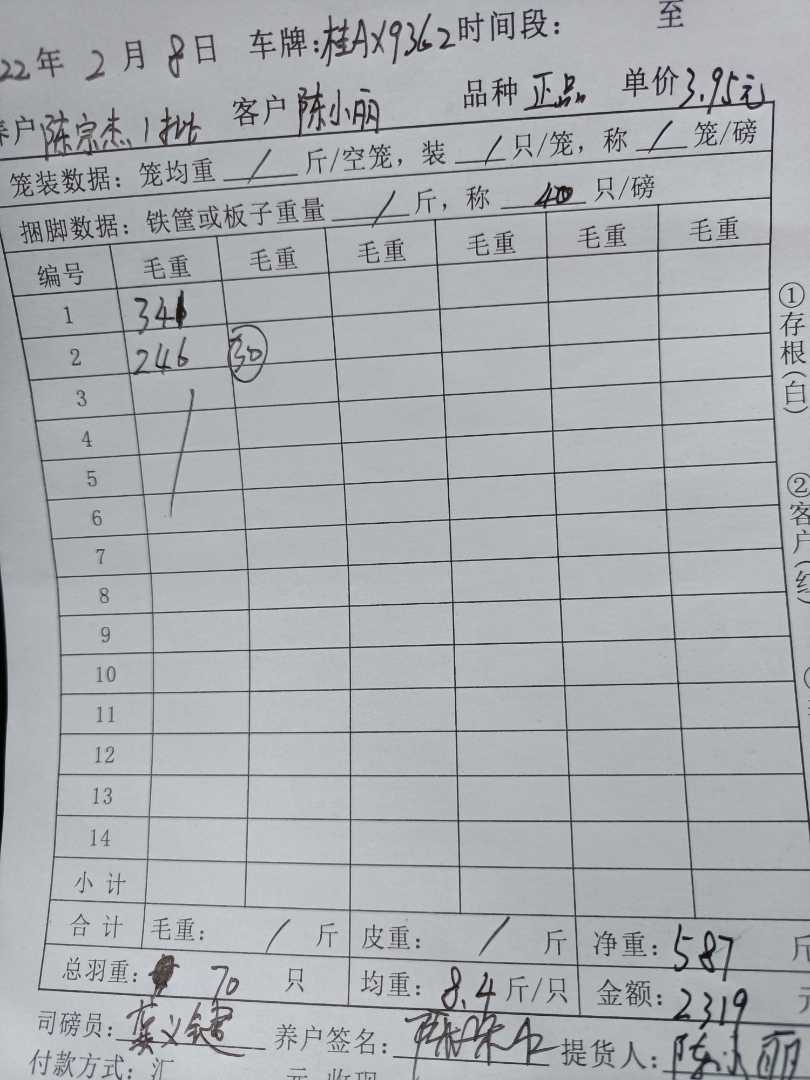 22年 2 月 8 日 车牌:桂AX9362 时间段: 至
养户 陈宗杰1批 客户 陈小丽 品种 正品 单价 3.95元
笼装数据: 笼均重 / 斤/空笼, 装 / 只/笼, 称 / 笼/磅
捆脚数据: 铁筐或板子重量 / 斤, 称 40 只/磅
编号 毛重 毛重 毛重 毛重 毛重 毛重
1 341
2 246 30
3 /
4
5
6
7
8
9
10
11
12
13
14
小计
合计 毛重: / 斤 皮重: / 斤 净重: 587 斤
总羽重: 70 只 均重: 8.4 斤/只 金额: 2319 元
司磅员: 养户签名: 提货人: 陈小丽
付款方式: 汇
①存根(白)
②客户(红)